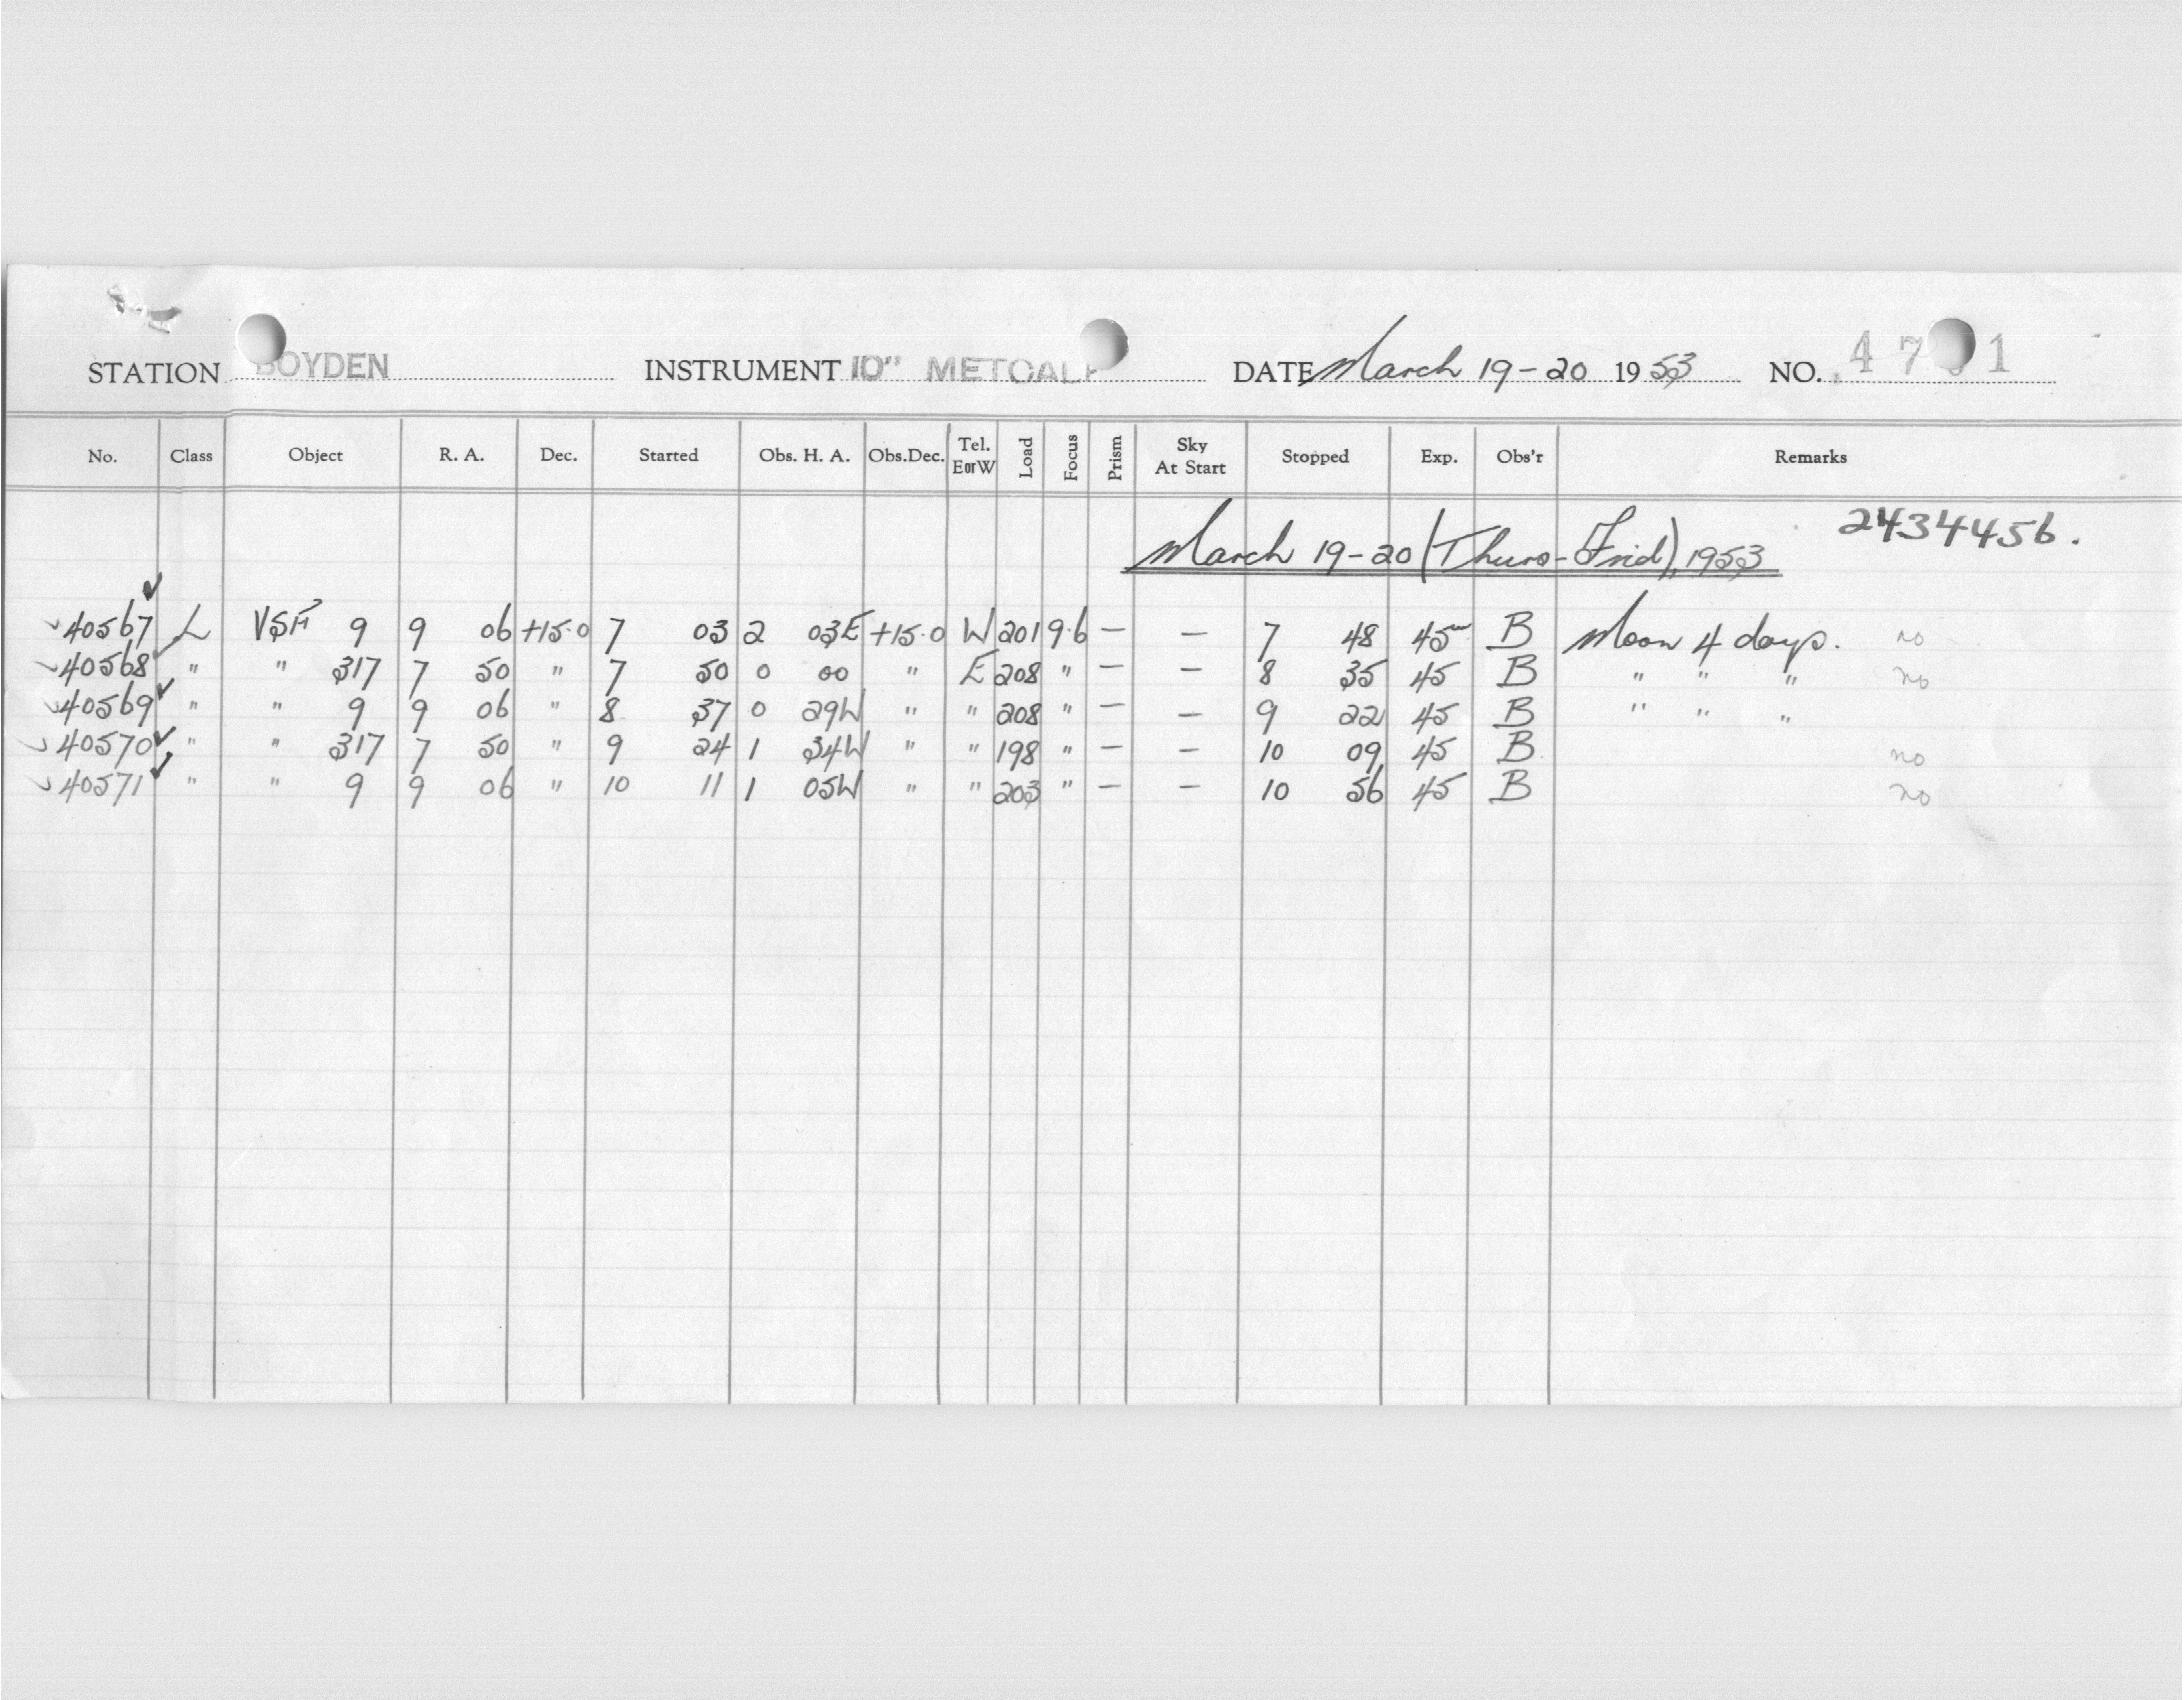 STATION BOYDEN INSTRUMENT 10" METCALF DATE March 19-20 1953 NO. 47 1
No. Class Object R. A. Dec. Started Obs. H. A. Obs.Dec. Tel. E or W Load Focus Prism Sky At Start Stopped Exp. Obs'r Remarks
March 19-20 (Thurs-Frid), 1953 2434456.
40567 L VSF 9 9 06 +15.0 7 03 2 03E +15.0 W 201 9.6 — — 7 48 45m B Moon 4 days. no
40568 " " 317 7 50 " 7 50 0 00 " E 208 " — — 8 35 45 B " " " no
40569 " " 9 9 06 " 8 37 0 29W " " 208 " — — 9 22 45 B " " "
40570 " " 317 7 50 " 9 24 1 34W " " 198 " — — 10 09 45 B no
40571 " " 9 9 06 " 10 11 1 05W " " 203 " — — 10 56 45 B no